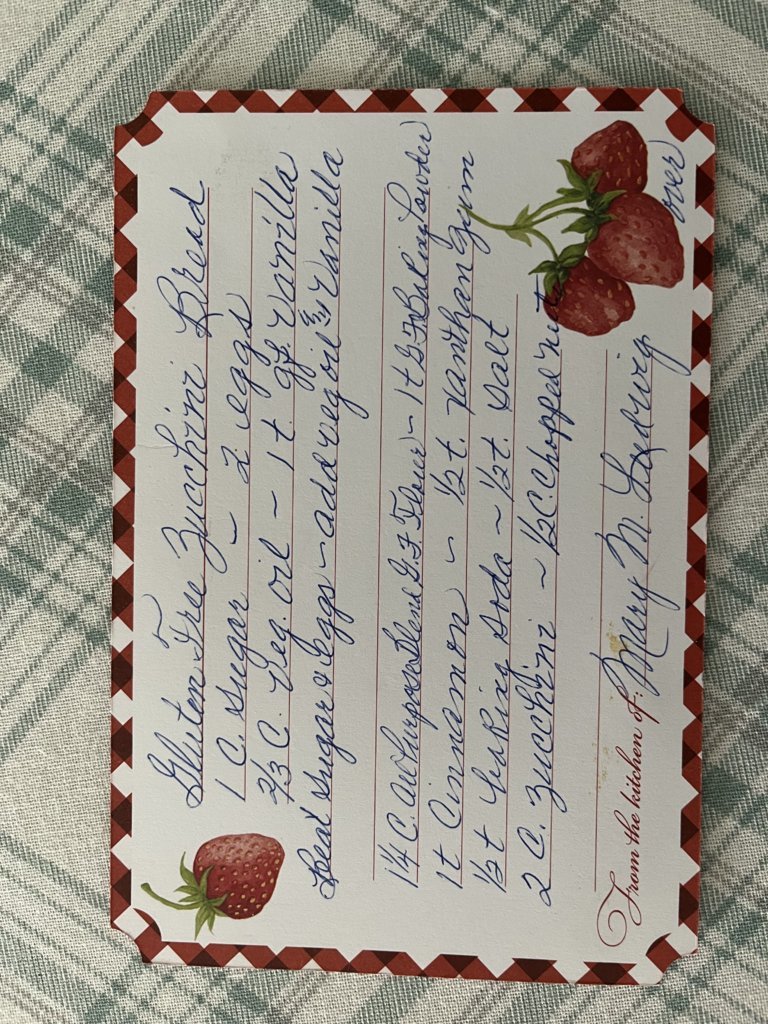 Gluten Free Zucchini Bread
1 C. Sugar ~ 2 eggs
2/3 C. Veg. oil ~ 1 t. gf. Vanilla
Beat Sugar & Eggs ~ add veg oil & Vanilla
1 1/4 C. All Purpose Blend G.F Flour ~ 1 t G F Baking Powder
1 t Cinnamon ~ 1/2 t. xanthan gum
1/2 t baking soda ~ 1/2 t. salt
2 C. zucchini ~ 1/2 C. Chopped nut
From the kitchen of: Mary M. Ludwig
over